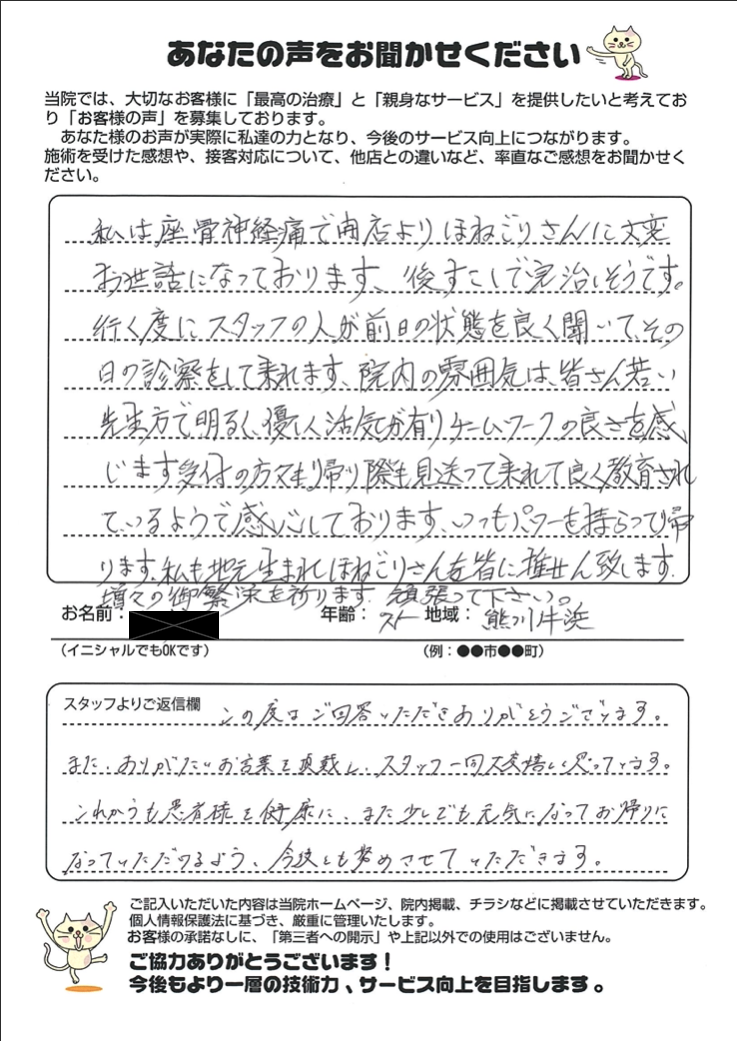 あなたの声をお聞かせください
当院では、大切なお客様に「最高の治療」と「親身なサービス」を提供したいと考えてお
り「お客様の声」を募集しております。
あなた様のお声が実際に私達の力となり、今後のサービス向上につながります。
施術を受けた感想や、接客対応について、他店との違いなど、率直なご感想をお聞かせく
ださい。
私は座骨神経痛で開店よりほねごりさんに大変
お世話になっております、後すこしで完治しそうです。
行く度にスタッフの人が前日の状態を良く聞いて、その
日の診察をして来れます、院内の雰囲気は、皆さん若い
先生方で明るく、優しく活気が有りチームワークの良さを感
じます受付の方々もり帰り際も見送って来れて良く教育され
ているようで感心しております、いつもパワーを持らって帰
ります、私も地元生まれほねごりさんを皆に推せん致します。
増々の御繁栄を祈ります。頑張って下さい。
お名前：
年齢：
地域：
熊川牛浜
（イニシャルでもOKです）
（例：●●市●●町）
スタッフよりご返信欄 この度はご回答いただきありがとうございます。
また、ありがたいお言葉を頂戴し、スタッフ一同大変嬉しく思っています。
これからも患者様を健康に、また少しでも元気になってお帰りに
なっていただけるよう、今後とも努めさせていただきます。
ご記入いただいた内容は当院ホームページ、院内掲載、チラシなどに掲載させていただきます。
個人情報保護法に基づき、厳重に管理いたします。
お客様の承諾なしに、「第三者への開示」や上記以外での使用はございません。
ご協力ありがとうございます！
今後もより一層の技術力、サービス向上を目指します。